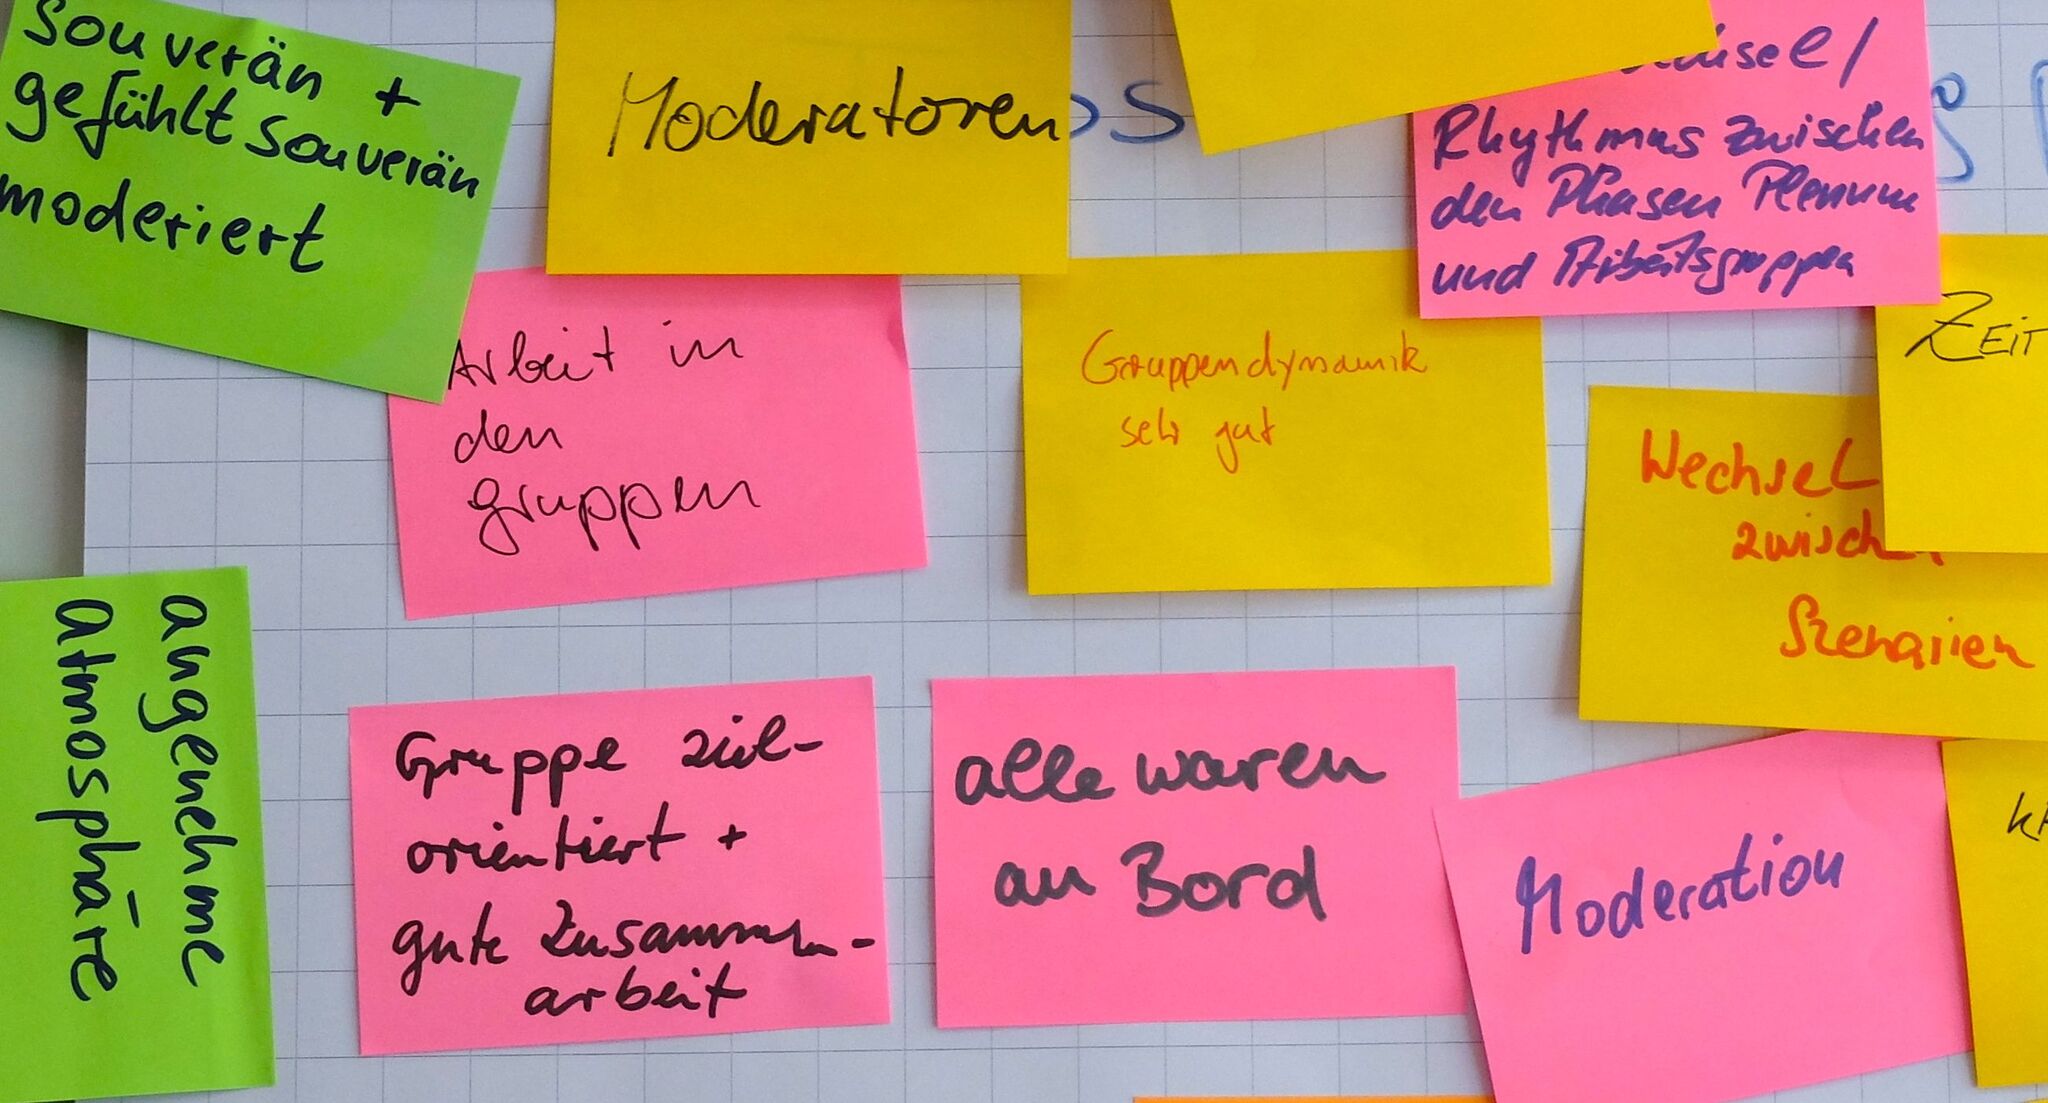 souverän +
gefühlt souverän
moderiert
Moderatoren
Rhythmus zwischen
den Phasen Plenum
und Arbeitsgruppen
ZEIT
Arbeit in
den
gruppen
Gruppendynamik
sehr gut
Wechsel
Szenarien
angenehme
Atmosphäre
Gruppe ziel-
orientiert +
gute Zusammen-
arbeit
alle waren
an Bord
Moderation